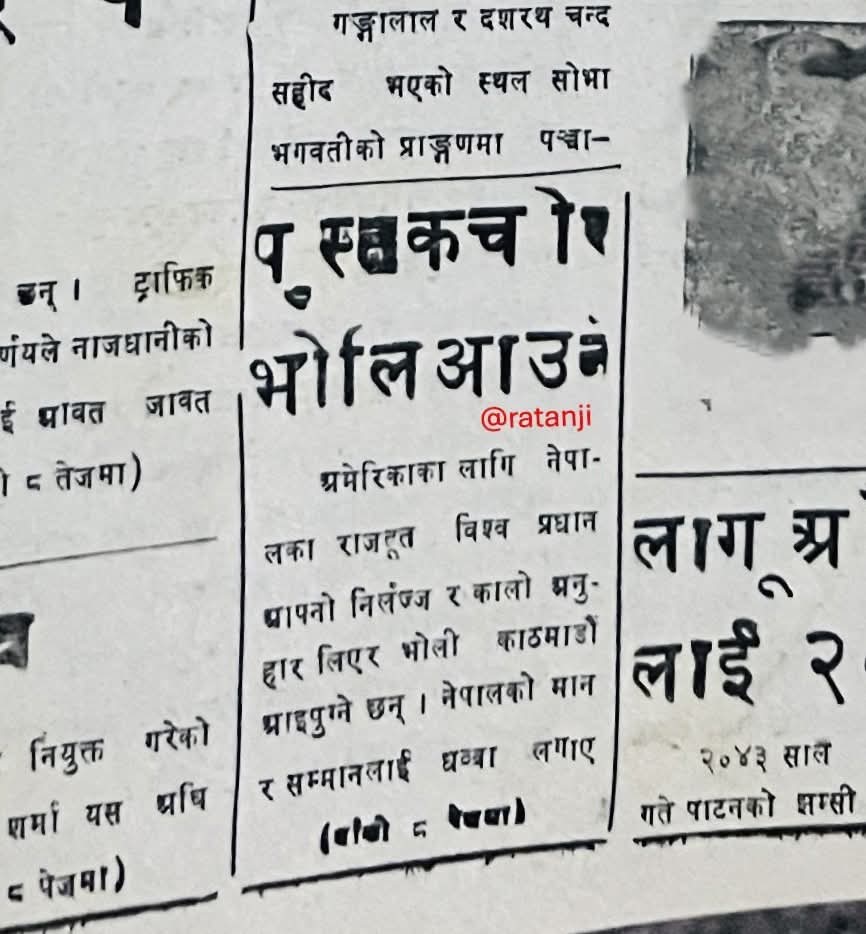 गङ्गालाल र दशरथ चन्द
सहीद भएको स्थल सोभा
भगवतीको प्राङ्गणमा पञ्चा-
पुस्तकचोर
भोलिआउने
@ratanji
अमेरिकाका लागि नेपा-
लका राजदूत विश्व प्रधान
आपनो निर्लज्ज र कालो अनु-
हार लिएर भोली काठमाडौं
आइपुग्ने छन् । नेपालको मान
र सम्मानलाई धब्बा लगाए
(बाँकी ८ पेजमा)
छन् । ट्राफिक
र्णयले नाजधानीको
ई यावत जावत
ो ८ तेजमा)
नियुक्त गरेको
शर्मा यस अघि
८ पेजमा)
लागू अ
लाई २
२०४३ साल
गते पाटनको